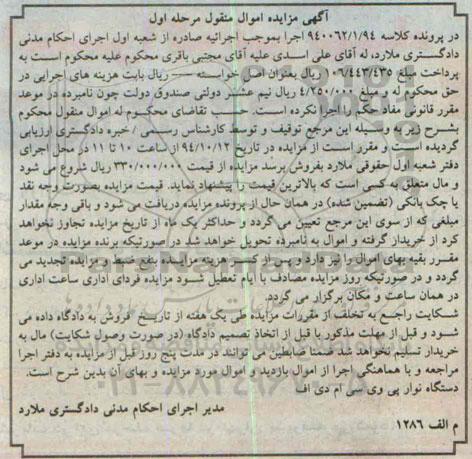 آگهی مزایده اموال منقول مرحله اول
در پرونده کلاسه ۹۴۰۰۶۲/۱/۹۴ اجرا بموجب اجرائیه صادره از شعبه اول اجرای احکام مدنی
دادگستری ملارد، له آقای علی اسدی علیه آقای مجتبی باقری محکوم علیه محکوم است به
پرداخت مبلغ ۱۰۶/۴۴۳/۴۳۵ ریال بعنوان اصل خواسته --- ریال بابت هزینه های اجرایی در
حق محکوم له و مبلغ ۴/۲۵۰/۰۰۰ ریال نیم عشر دولتی صندوق دولت چون نامبرده در موعد
مقرر قانونی مفاد حکم را اجرا نکرده است. حسب تقاضای محکوم له اموال منقول محکوم
بشرح زیر به وسیله این مرجع توقیف و توسط کارشناس رسمی / خبره دادگستری ارزیابی
گردیده است و مقرر است از مزایده در تاریخ ۹۴/۱۰/۱۲ از ساعت ۱۰ تا ۱۱ در محل اجرای
دفتر شعبه اول حقوقی ملارد بفروش برسد مزایده از قیمت ۳۳۰/۰۰۰/۰۰۰ ریال شروع می شود
و مال متعلق به کسی است که بالاترین قیمت را پیشنهاد نماید. قیمت مزایده بصورت وجه نقد
یا چک بانکی (تضمین شده) در همان حال از برنده مزایده دریافت می شود و باقی وجه مقدار
مبلغی که از سوی این مرجع تعیین می گردد و حداکثر یک ماه از تاریخ مزایده تجاوز نخواهد
کرد از خریدار گرفته و اموال به نامبرده تحویل خواهد شد در صورتیکه برنده مزایده در موعد
مقرر بقیه بهای اموال را نپردازد و پس از کسر هزینه مزایده بنفع ضبط و مزایده تجدید می
گردد و در صورتیکه روز مزایده مصادف با ایام تعطیل شود مزایده فردای اداری ساعت اداری
در همان ساعت و مکان برگزار می گردد.
شکایت راجع به تخلف از مقررات مزایده طی یک هفته از تاریخ فروش به دادگاه داده می
شود و قبل از مهلت مذکور یا قبل از اتخاذ تصمیم دادگاه (در صورت وصول شکایت) مال به
خریدار تسلیم نخواهد شد ضمنا ضابطین می توانند در مدت پنج روز قبل از مزایده به دفتر اجرا
مراجعه و با هماهنگی اجرا از اموال بازدید و اموال مورد مزایده و بهای آن بدین شرح است.
دستگاه نوار پی وی سی ام دی اف
مدیر اجرای احکام مدنی دادگستری ملارد
م الف ۱۲۸۶
۰۲۱-۸۸۳۴۹۶۷۰-۵